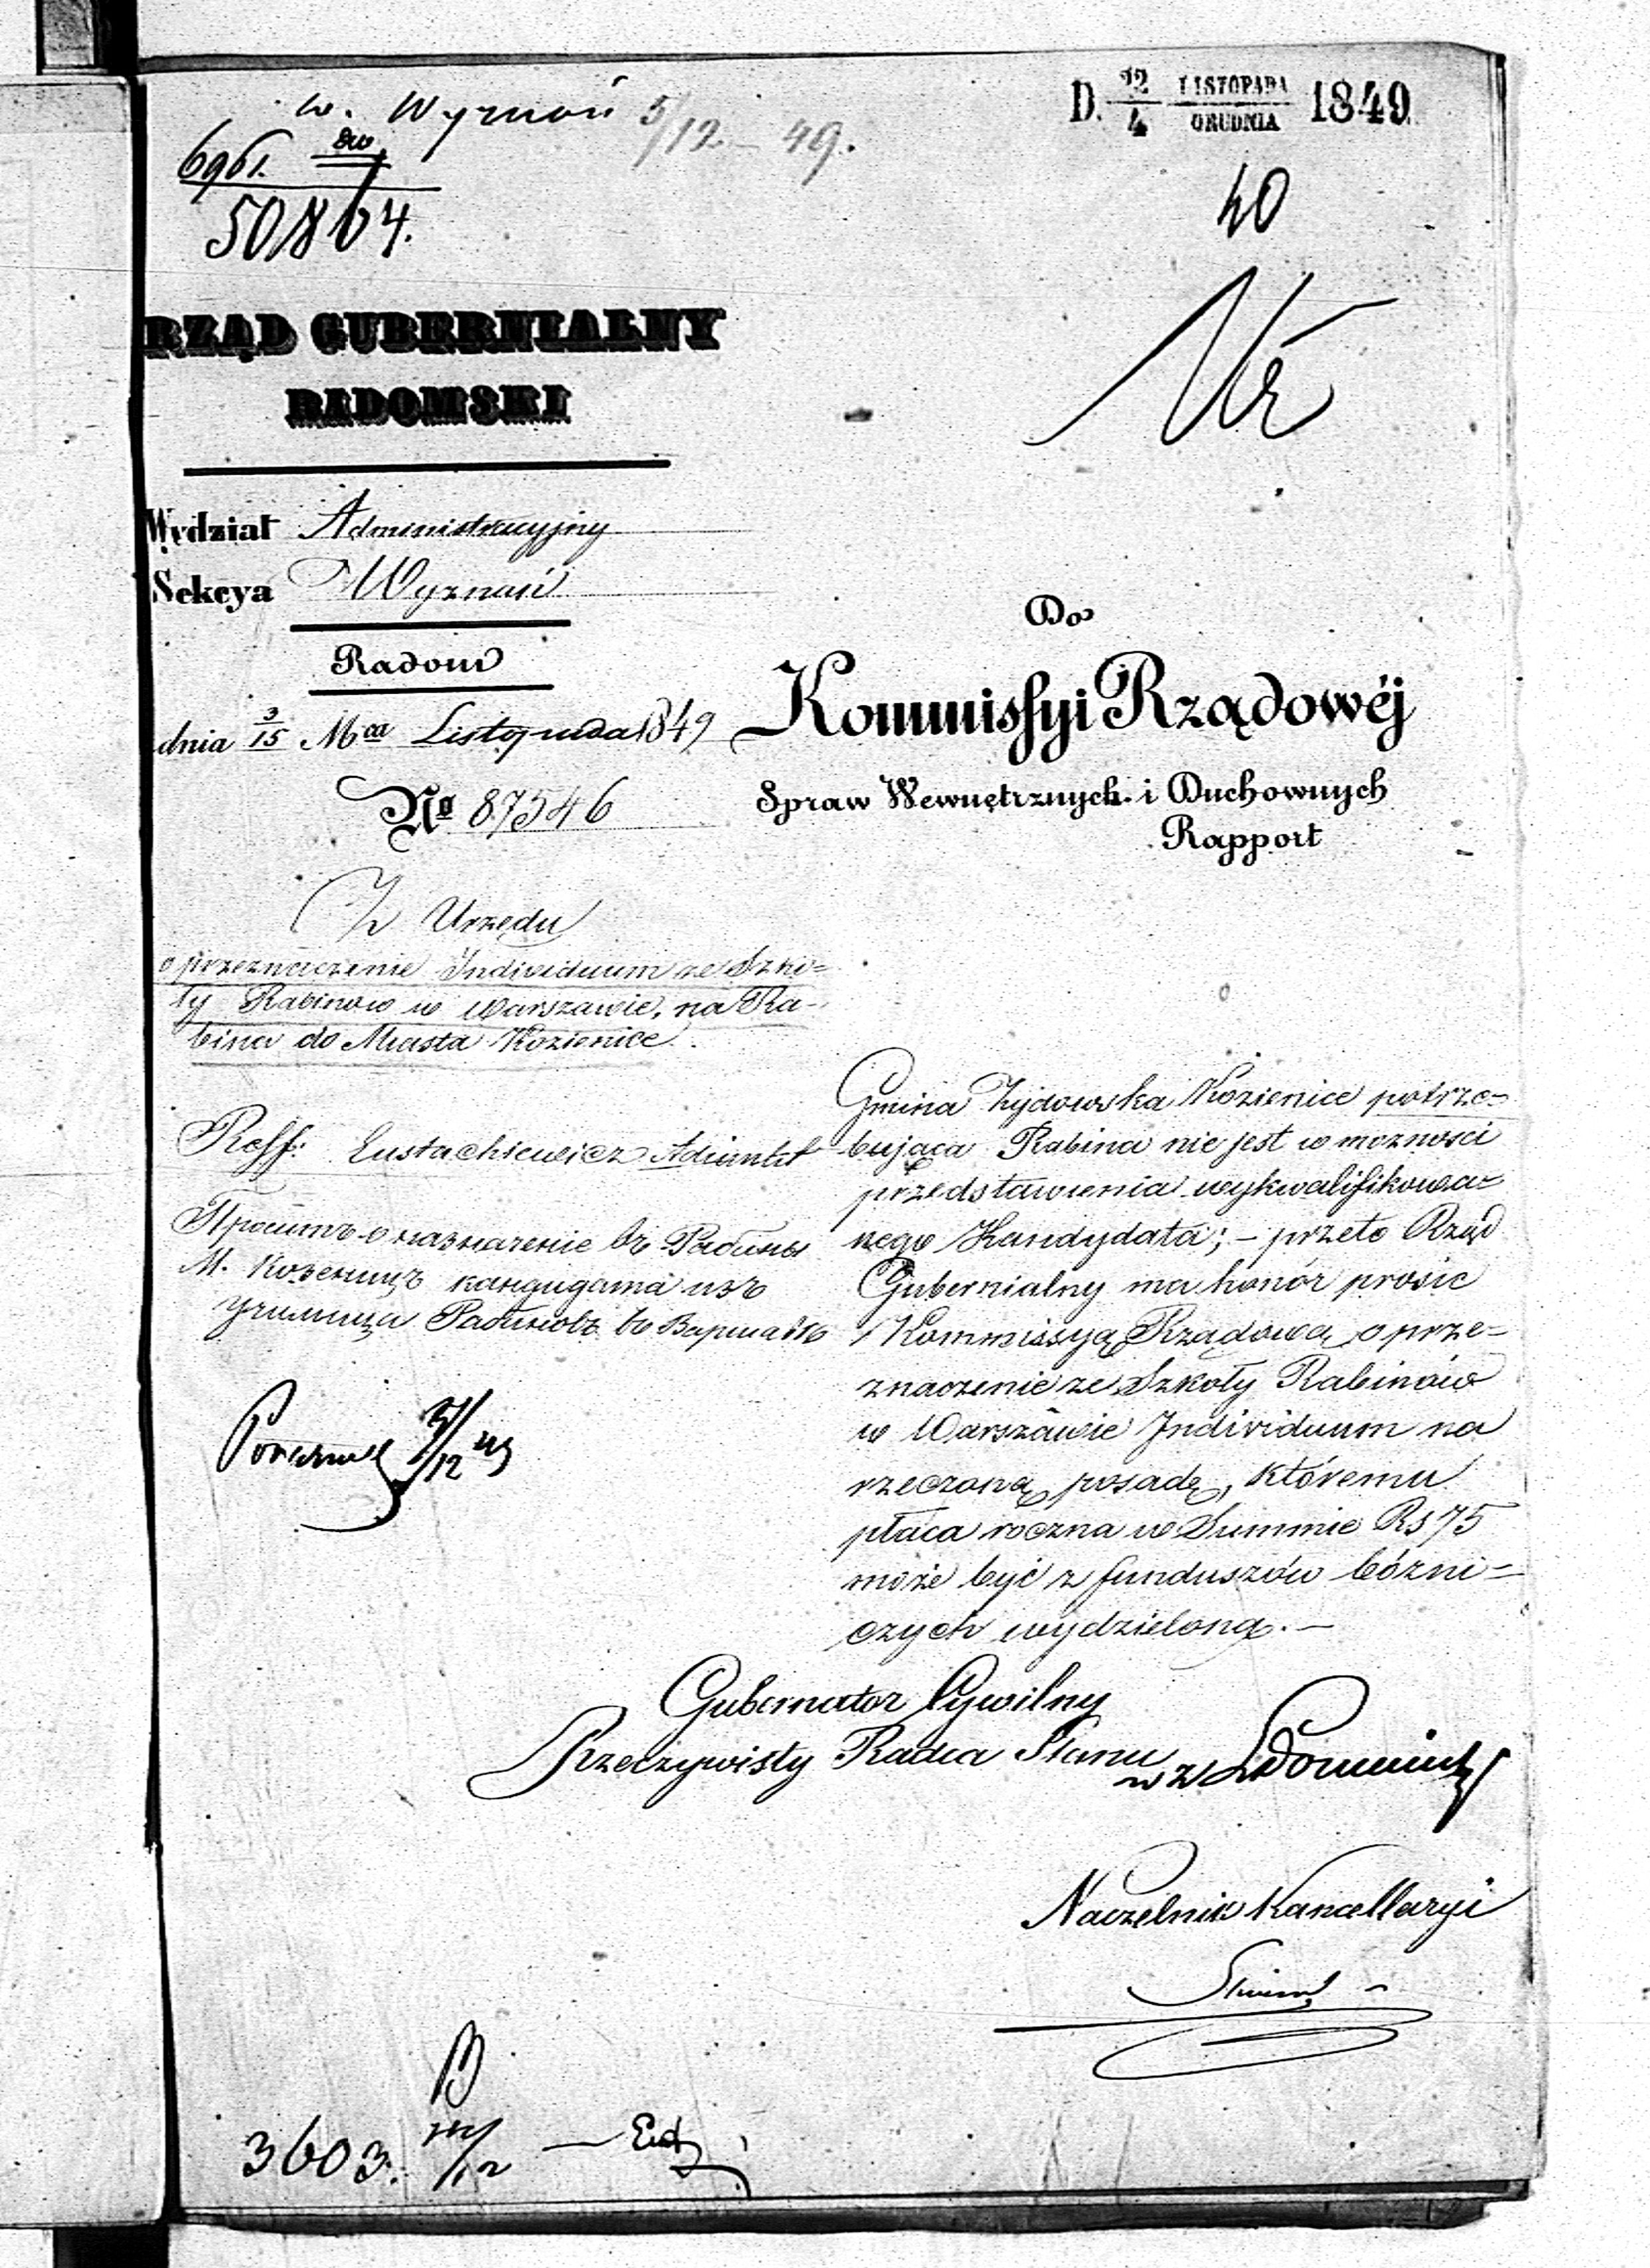 w. Wyznań 5/12 - 49.
D. 22/4 LISTOPADA/GRUDNIA 1849
6961.
50864.
40
RZĄD GUBERNIALNY
RADOMSKI
Wydział Administracyjny
Sekcya Wyznań
Radom
dnia 3/15 Mca Listopada 1849
No 87546
Do
Kommissyi Rządowéj
Spraw Wewnętrznych i Duchownych
Rapport
Z Urzędu
o przeznaczenie Individuum ze Szko=
ły Rabinow w Warszawie, na Ra-
bina do Miasta Kozienice.
Reff: Eustachiewicz Adiunkt
Проситъ о назначение въ Рабины
М. Козеницъ кандидата изъ
училища Рабиновъ въ Варшавѣ
Gmina Żydowska Kozienice potrze=
bująca Rabina nie jest w możności
przedstawienia wykwalifikowa=
nego Kandydata; - przeto Rząd
Gubernialny ma honór prosić
Kommissyą Rządową o prze=
znaczenie ze Szkoły Rabinów
w Warszawie Individuum na
rzeczoną posadę, któremu
płaca roczna w Summie Rs 75
może być z funduszów bóżni=
czych wydzieloną. -
Gubernator Cywilny
Rzeczywisty Radca Stanu
w z
Naczelnik Kancellaryi
3603.